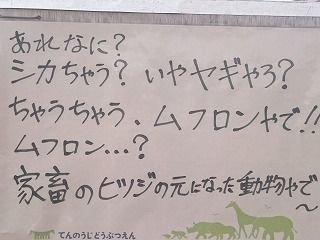 あれなに？
シカちゃう？ いやヤギやろ？
ちゃうちゃう、ムフロンやで!!
ムフロン…？
家畜のヒツジの元になった動物やで〜
てんのうじどうぶつえん